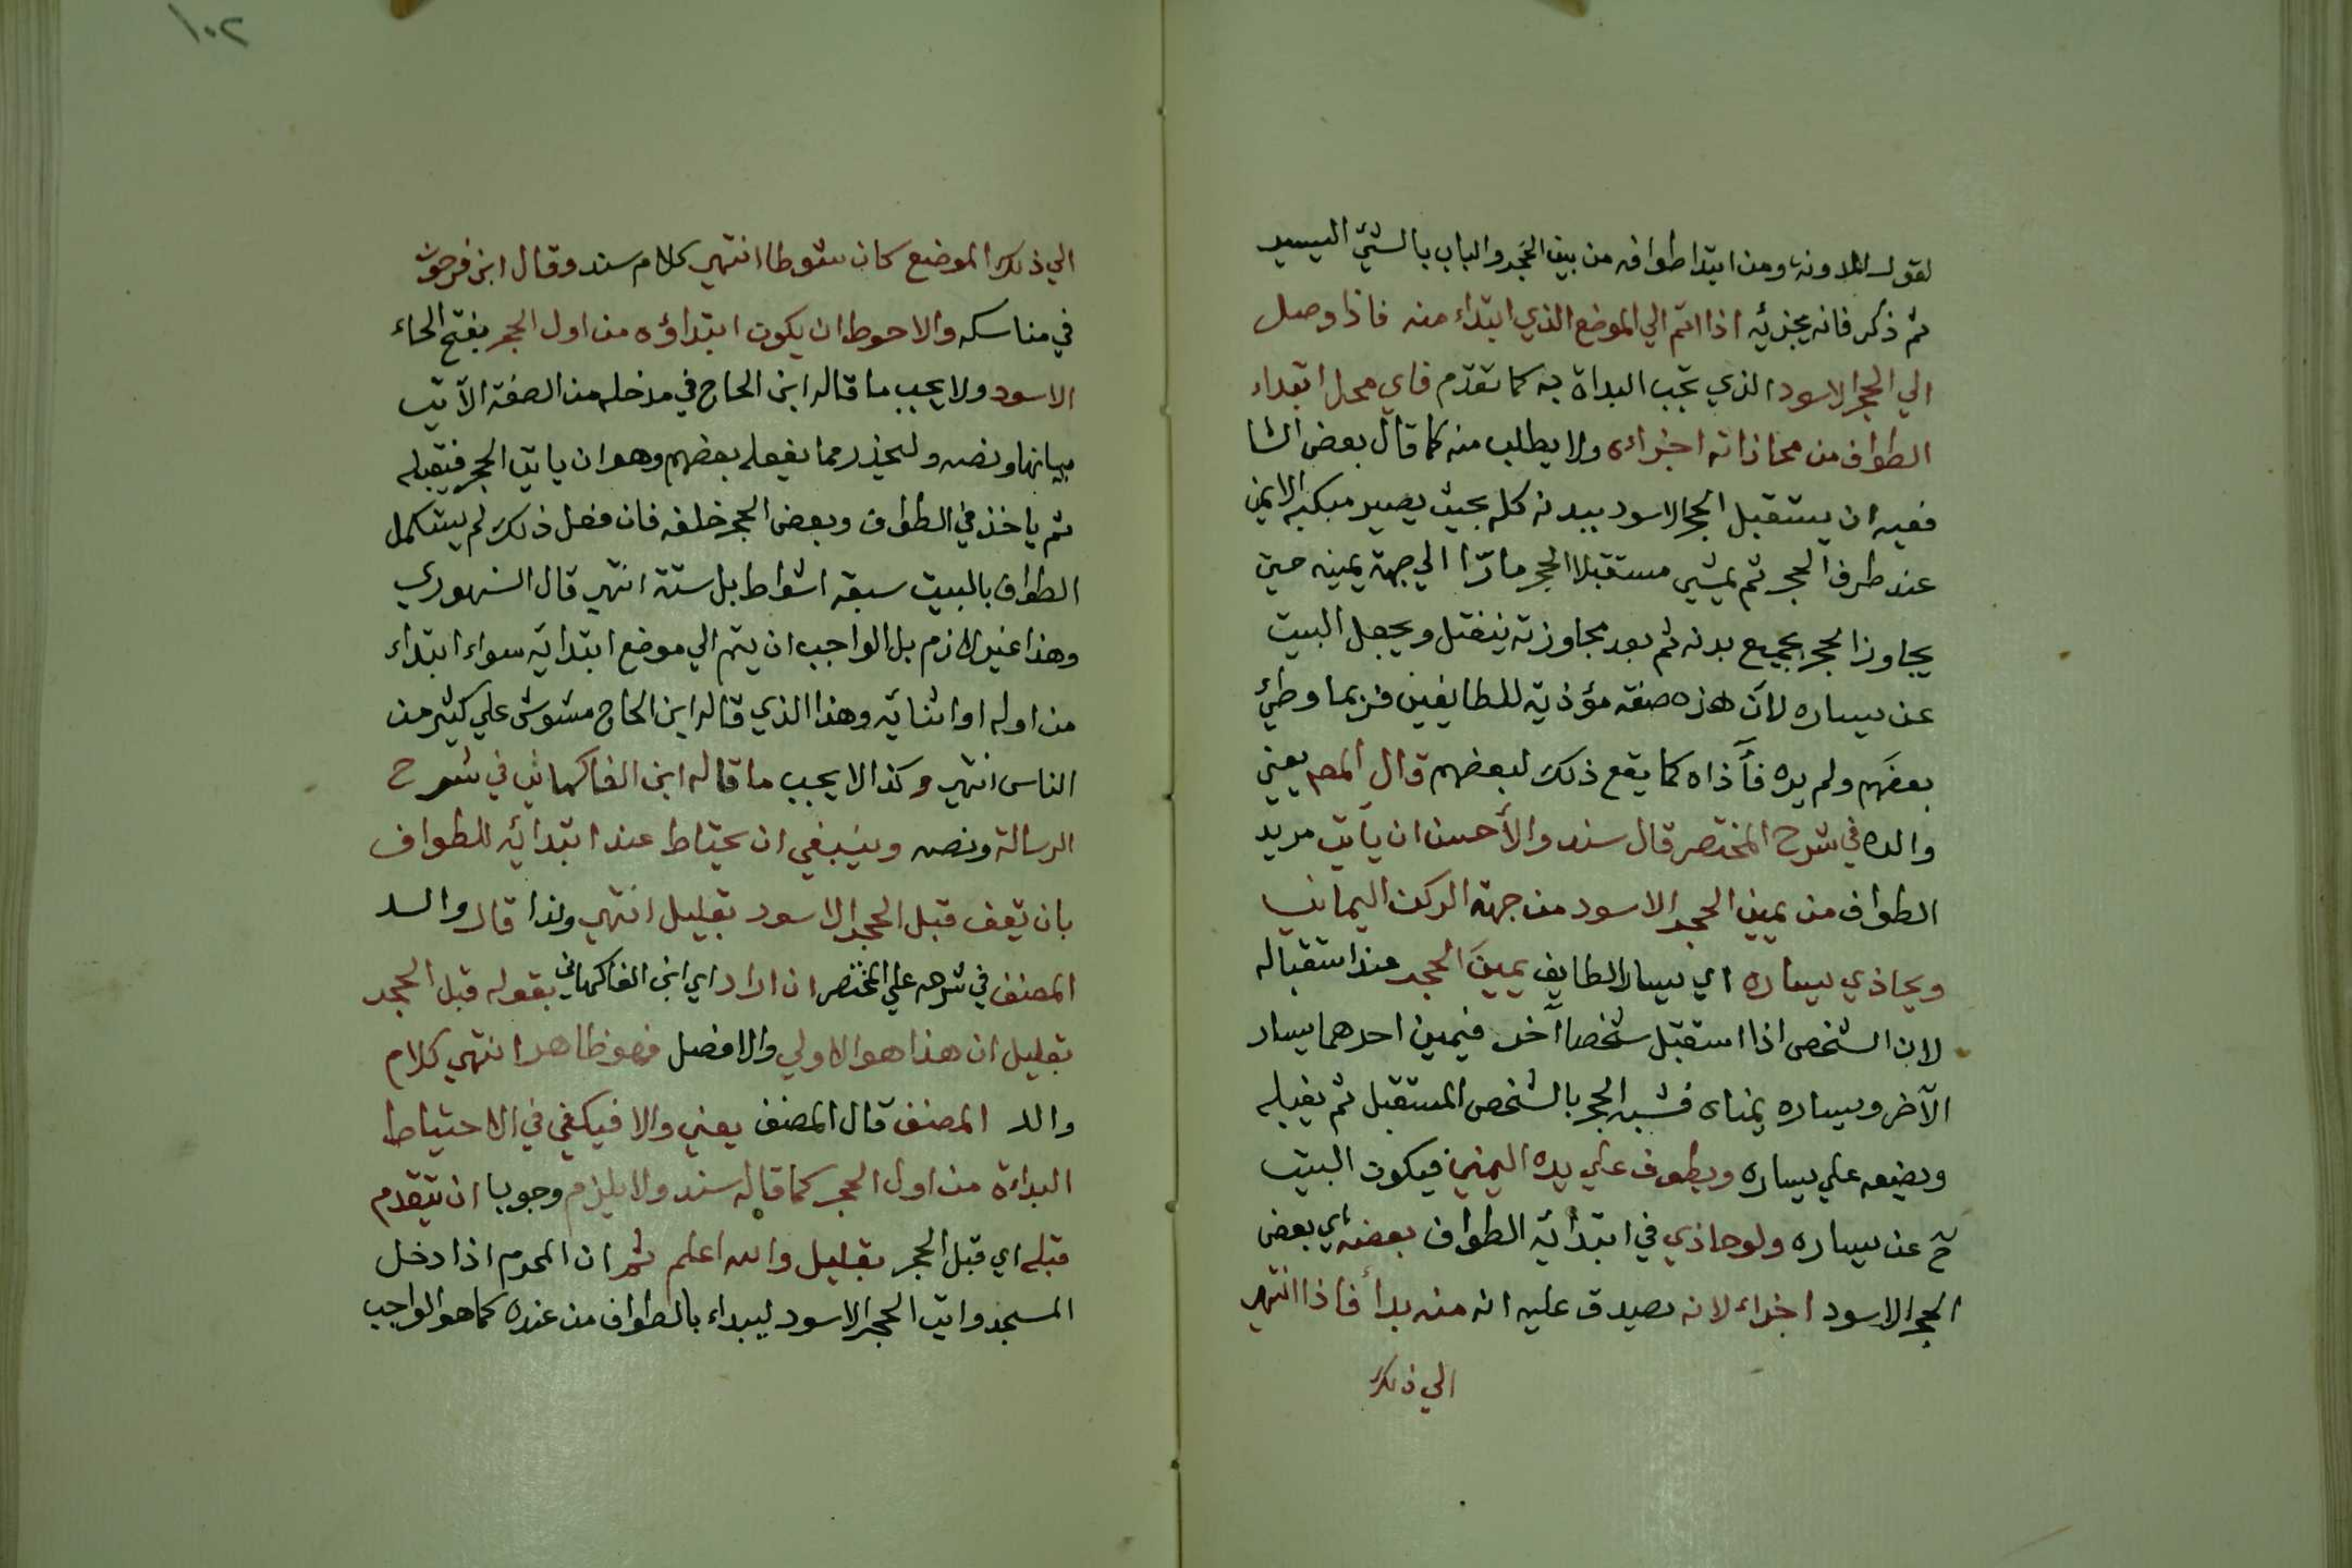 لقول المدونة ومن ابتدا طوافه من بين الحَجر والباب بالشيء اليسير
ثم ذكر فانه يجزئيه اذا اتم الي الموضع الذي ابتداء منه فاذا وصل
الي الحجر الاسود الذي تجب البداة به كما تقدم فاي محل ابتداء
الطواف من محاذاته اجزاه ولا يطلب منه كما قال بعض الشا
فعيه ان يستقبل الحجر الاسود ببدنه كله بحيث يصير مبكبه الايمن
عند طرف الحجر ثم يمشي مستقبلا الحجر مارّا الي جهة يمينه حتي
يجاوز الحجر بجميع بدنه ثم بعد مجاوزته ينفتل ويجعل البيت
عن يساره لأن هذه صفة مؤذية للطايفين فربما وطئ
بعضهم ولم يره فأذاه كما يقع ذلك لبعضهم قال المصم يعني
والده في شرح المختصر قال سند والأحسن ان ياتي مريد
الطواف من يمين الحجر الاسود من جهة الركن اليماني
ويحاذي يساره اي يسار الطايف يمينَ الحجر عند استقباله
لان الشخص اذا استقبل شخصا آخر فيمين احدهما يسار
الآخر ويساره يمناه فشبه الحجر بالشخص المستقبل ثم يقبله
ويضعه علي يساره ويطوف علي يده اليمني فيكون البيت
ح عن يساره ولو حاذي في ابتدائه الطواف بعضه اي بعض
الحجر الاسود اجزاء لانه يصدق عليه انه منه بدأ فاذا انتهي
الي ذلك
١٠٢
الي ذلك الموضع كان شوطا انتهي كلام سند وقال ابن فرحون
في مناسكه والاحوط ان يكون ابتداؤه من اول الحجر بفتح الحاء
الاسود ولا يجب ما قاله ابن الحاج في مدخله من الصفة الآتي
بيانها ونصه وليحذر مما يفعله بعضهم وهو ان ياتي الحجر فيقبله
ثم ياخذ في الطواف وبعض الحجر خلفه فان فعل ذلك لم يستكمل
الطواف بالبيت سبعة اشواط بل ستة انتهي قال السنهوري
وهذا غير لازم بل الواجب ان يتم الي موضع ابتدائه سواء ابتداء
من اوله او اثنائه وهذا الذي قاله ابن الحاج مشوش علي كثير من
الناس انتهي وكذا لا يجب ما قاله ابن الفاكهاني في شرح
الرسالة ونصه وينبغي ان يحتاط عند ابتدائه للطواف
بان يقف قبل الحجر الاسود بقليل انتهي ولذا قال والد
المصنف في شرحه علي المختصر ان اراد اي ابن الفاكهاني بقوله قبل الحجر
بقليل ان هذا هو الاولي والافضل فهو ظاهر انتهي كلام
والد المصنف قال المصنف يعني والا فيكفي في الاحتياط
البداءة من اول الحجر كما قاله سند ولا يلزم وجوبا ان يتقدم
قبله اي قبل الحجر بقليل والله اعلم ثم ان المحرم اذا دخل
المسجد واتي الحجر الاسود ليبداء بالطواف من عنده كما هو الواجب